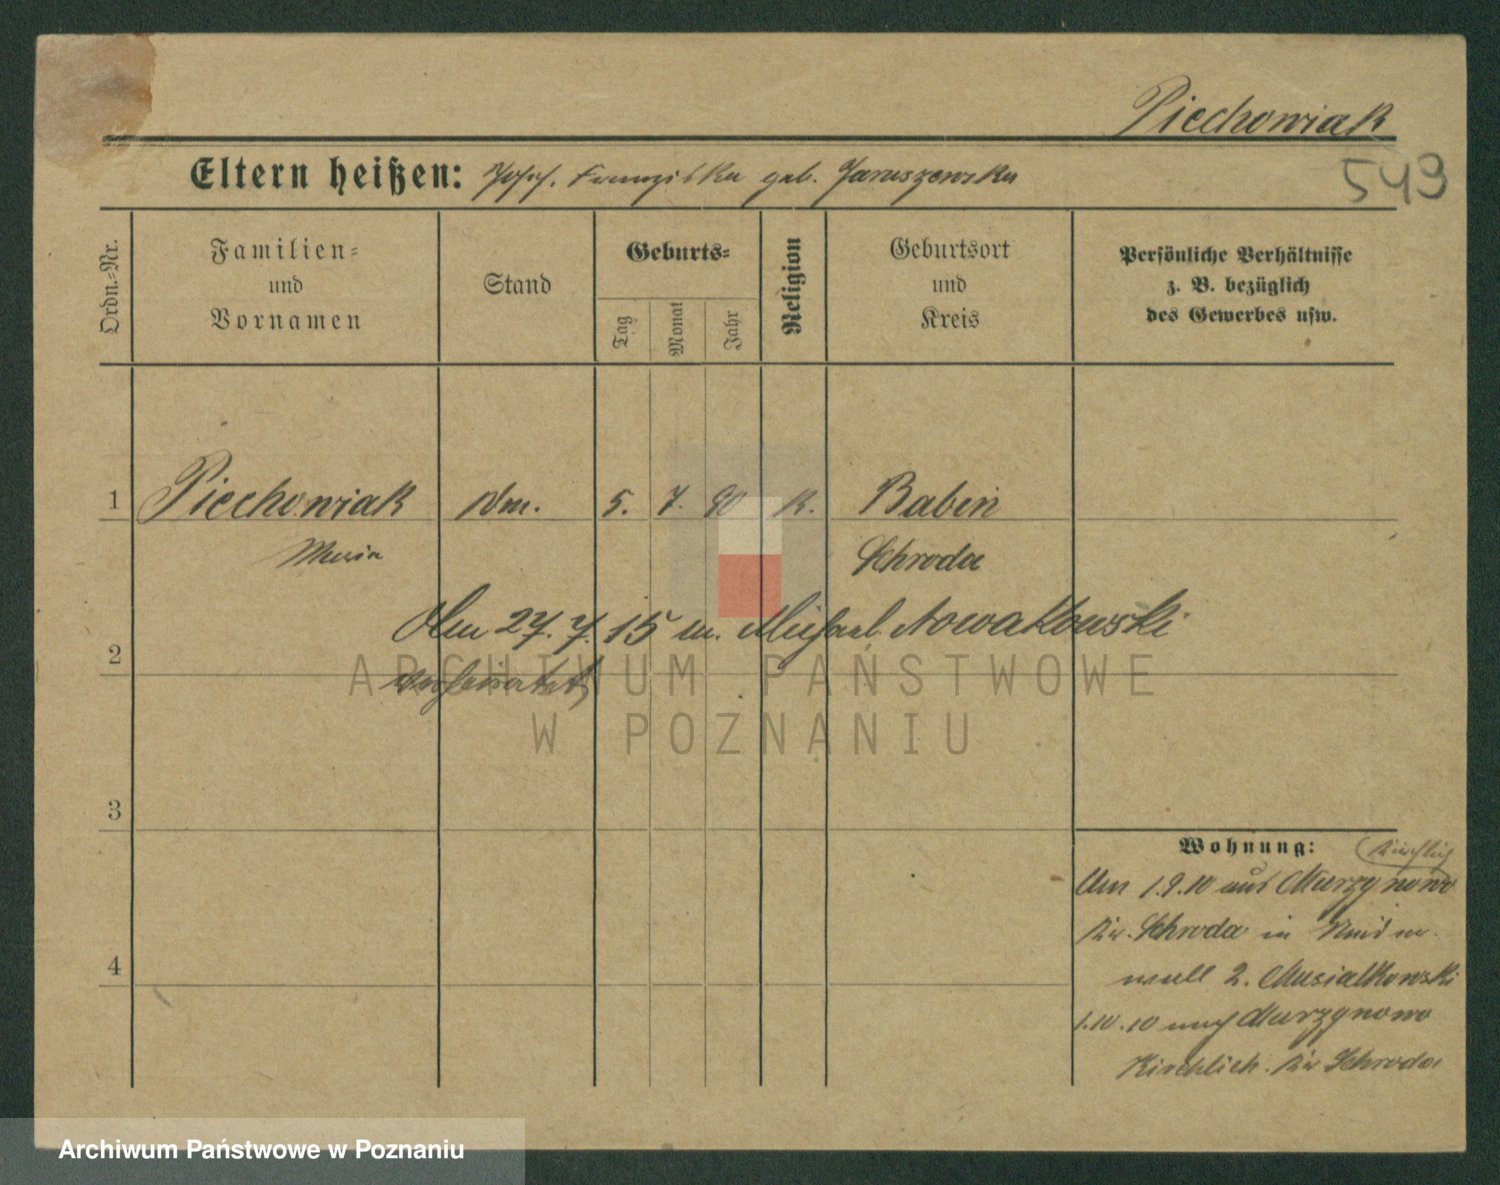 Piechowiak
549
Eltern heißen: Josef, Franziska geb. Jaruszewska
Ordn.=Nr.
Familien=
und
Vornamen
Stand
Geburts=
Tag
Monat
Jahr
Religion
Geburtsort
und
Kreis
Persönliche Verhältnisse
z. B. bezüglich
des Gewerbes usw.
1 Piechowiak 5. 7. 90 k. Babin
Maria Schroda
Am 27.7.15 m. Michael Nowakowski
2
verheiratet
3
4
Wohnung:
Kirchlich
Am 1.9.10 aus Murzynowo
Kr. Schroda in
wall 2. Musialkowski
1.10.10 nach Murzynowo
Kirchlich. Kr Schroda
ARCHIWUM PAŃSTWOWE
W POZNANIU
Archiwum Państwowe w Poznaniu